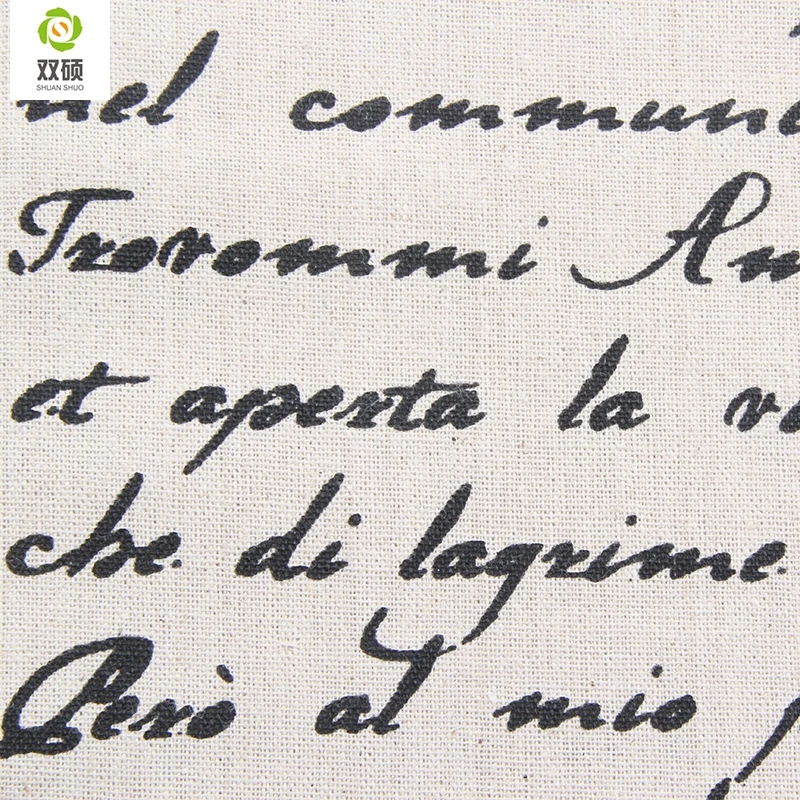 双硕
SHUAN SHUO
nel commune
Trovommi Am
et aperta la
che di lagrime
Però al mio